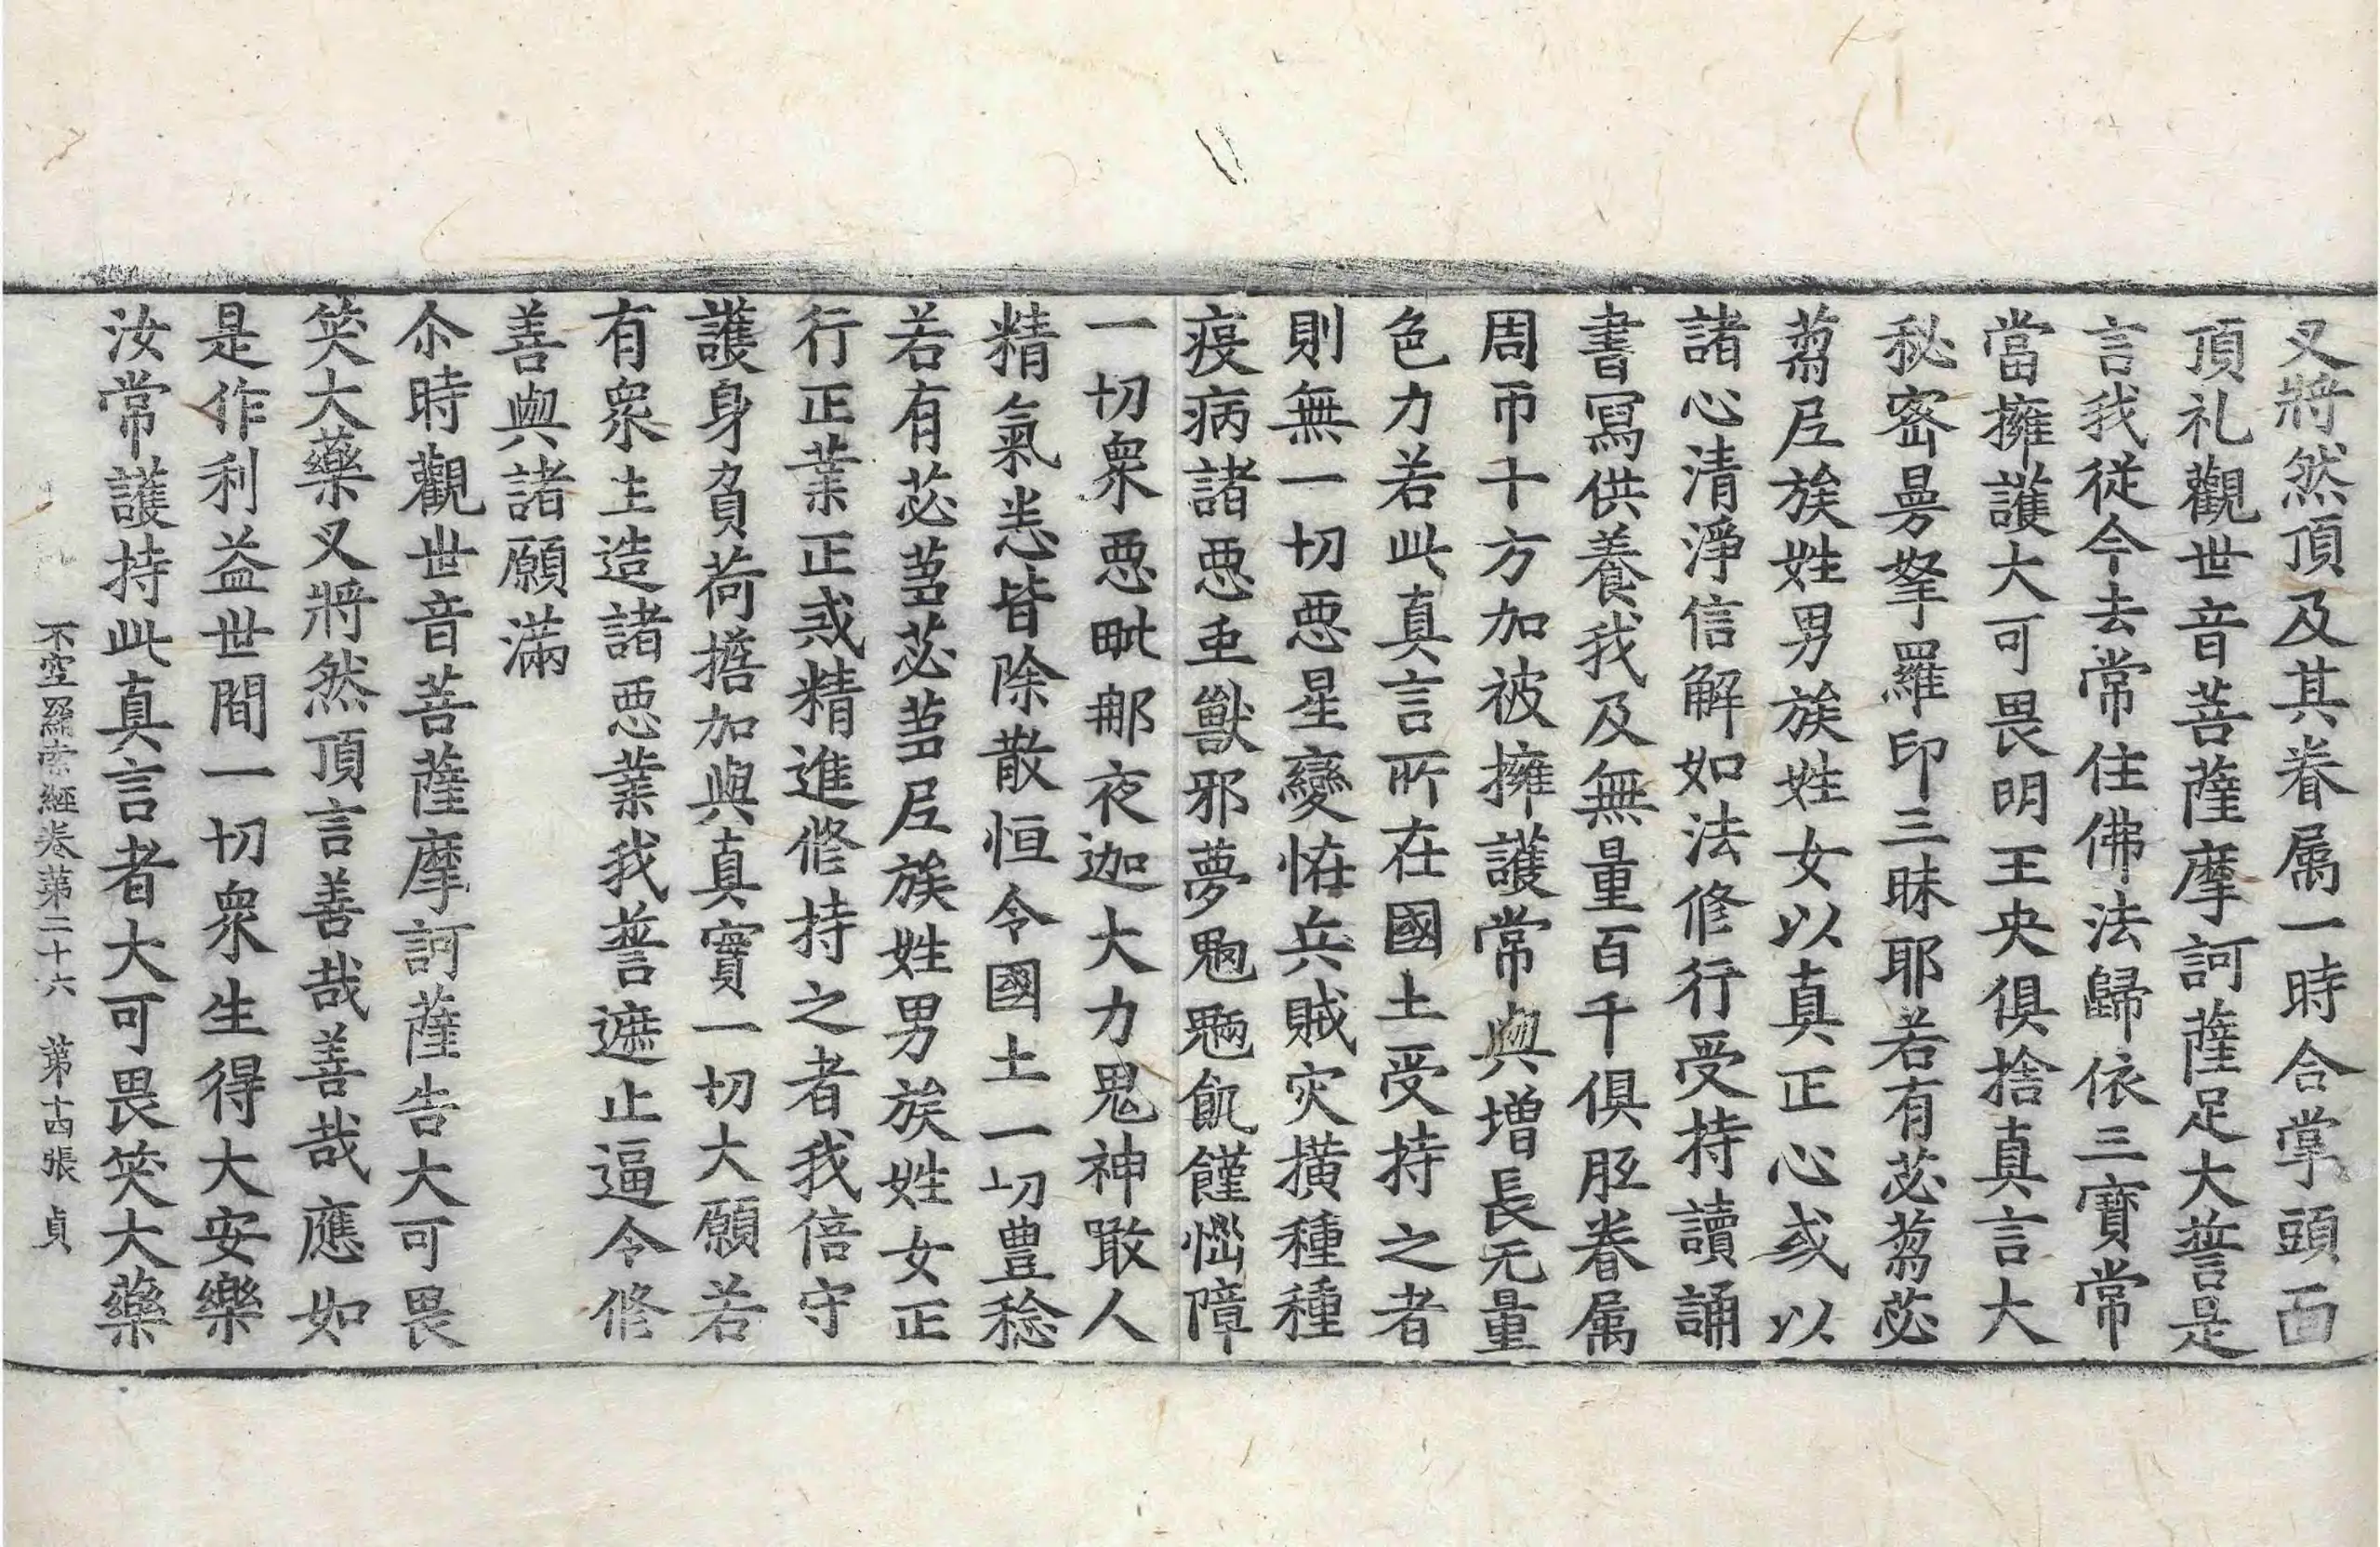 叉將然頂及其眷属一時合掌頭面
頂礼觀世音菩薩摩訶薩足大誓是
言我從今去常住佛法歸依三寶常
當擁護大可畏明王央俱捨真言大
秘密曼拏羅印三昧耶若有苾芻苾
芻尼族姓男族姓女以真正心或以
諸心清淨信解如法修行受持讀誦
書寫供養我及無量百千俱胝眷属
周帀十方加被擁護常與增長无量
色力若此真言所在國土受持之者
則無一切惡星變恠兵賊灾橫種種
疫病諸惡虫獸邪夢魍魎飢饉惱障
一切衆惡毗那夜迦大力鬼神噉人
精氣悉皆除散恒令國土一切豊稔
若有苾芻苾芻尼族姓男族姓女正
行正業正戒精進修持之者我倍守
護身負荷擔加與真實一切大願若
有衆生造諸惡業我誓遮止逼令修
善與諸願滿
尒時觀世音菩薩摩訶薩告大可畏
笑大藥叉將然頂言善哉善哉應如
是作利益世間一切衆生得大安樂
汝常護持此真言者大可畏笑大藥
不空羂索經卷第二十六 第十四張 貞